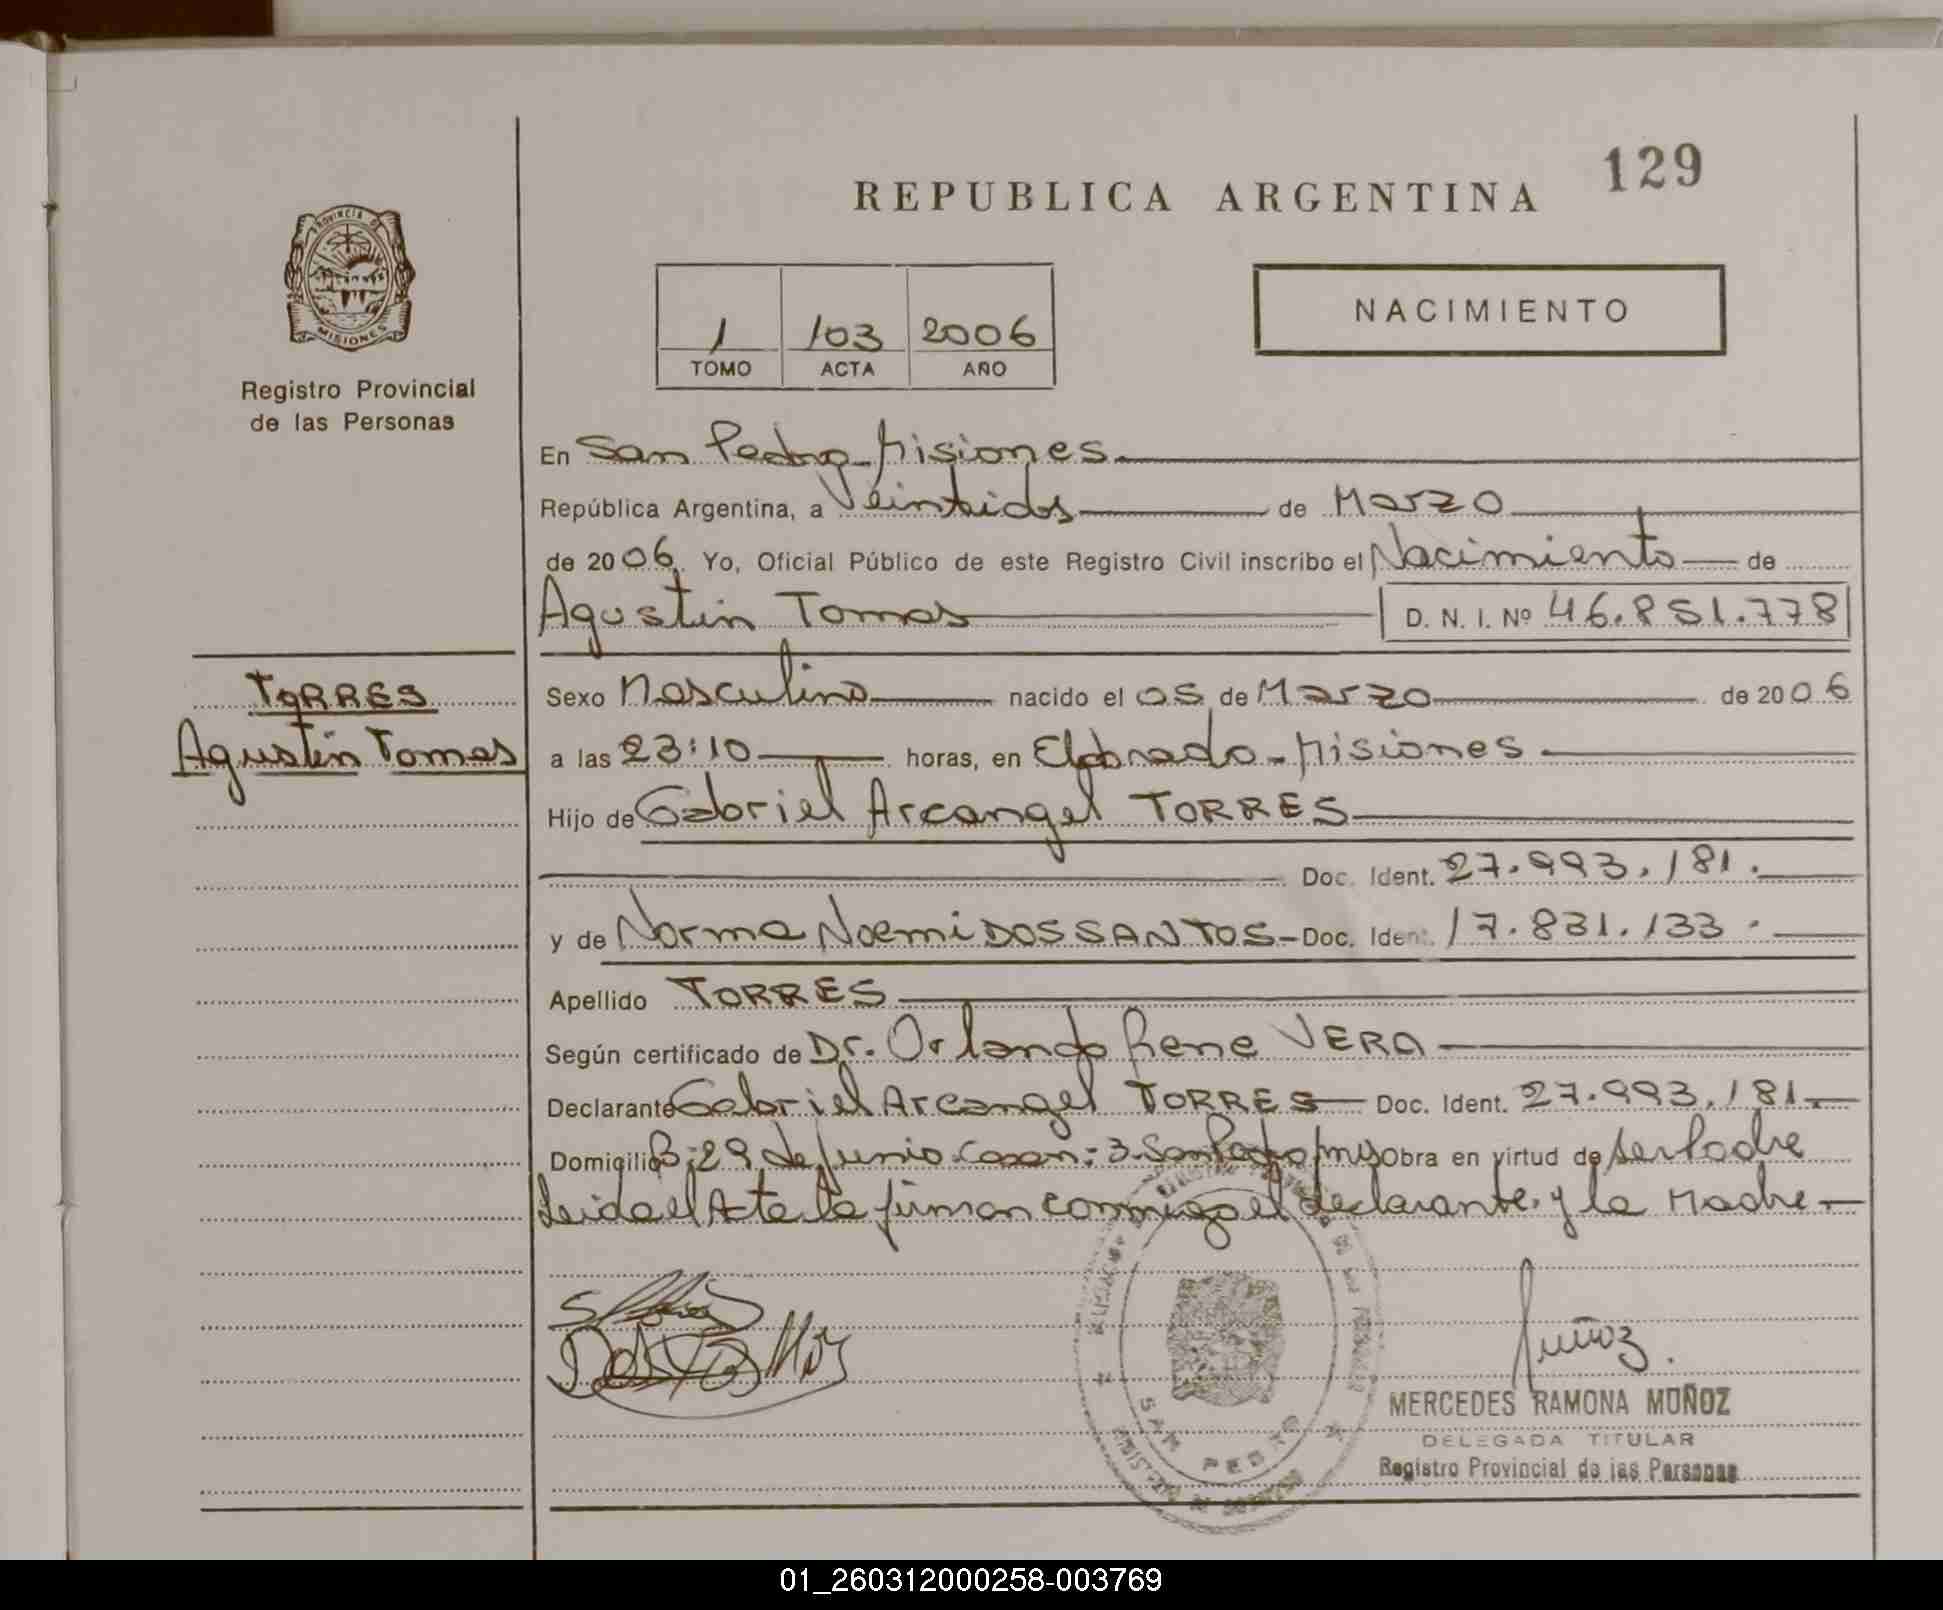 129
REPUBLICA ARGENTINA
PROVINCIA DE
MISIONES
Registro Provincial
de las Personas
1 103 2006
TOMO ACTA AÑO
NACIMIENTO
En San Pedro - Misiones
República Argentina, a Veintidos de Marzo
de 2006. Yo, Oficial Público de este Registro Civil inscribo el Nacimiento de
Agustin Tomas D. N. I. Nº 46.851.778
TORRES
Agustin Tomas
Sexo Masculino nacido el 05 de Marzo de 2006
a las 23:10 horas, en Eldorado - Misiones
Hijo de Gabriel Arcangel TORRES
Doc. Ident. 27.993.181.
y de Norma Noemi DOS SANTOS - Doc. Ident. 17.831.133.
Apellido TORRES
Según certificado de Dr. Orlando Rene VERA
Declarante Gabriel Arcangel TORRES Doc. Ident. 27.993.181.
Domicilio B: 29 de Junio. Casa n: 3. San Pedro Obra en virtud de ser Padre
Leida el Acta la firman conmigo el declarante. y la Madre -
Muñoz.
SAN PEDRO
MERCEDES RAMONA MUÑOZ
DELEGADA TITULAR
Registro Provincial de las Personas
01_260312000258-003769